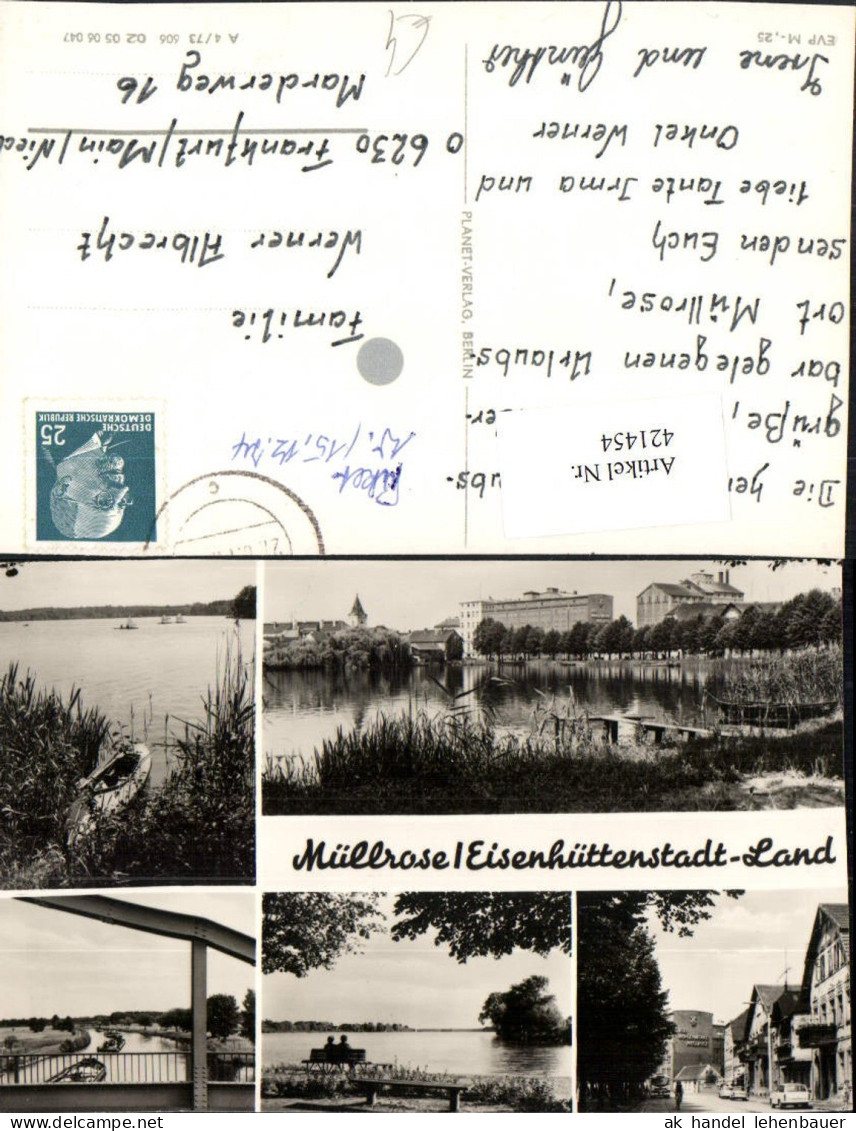 Die her ubs-
grüße, er-
bar gelegenen Urlaubs-
ort Müllrose,
senden Euch
liebe Tante Irma und
Onkel Werner
Irene und Günther
EVP M -,25
Artikel Nr.
421454
PLANET-VERLAG, BERLIN
DEUTSCHE
DEMOKRATISCHE REPUBLIK
25
15.12.74
Familie
Werner Albrecht
6230 Frankfurt/Main/Nied
Marderweg 16
A 4/73 606 02 05 06 047
Müllrose/Eisenhüttenstadt-Land
ak handel lehenbauer